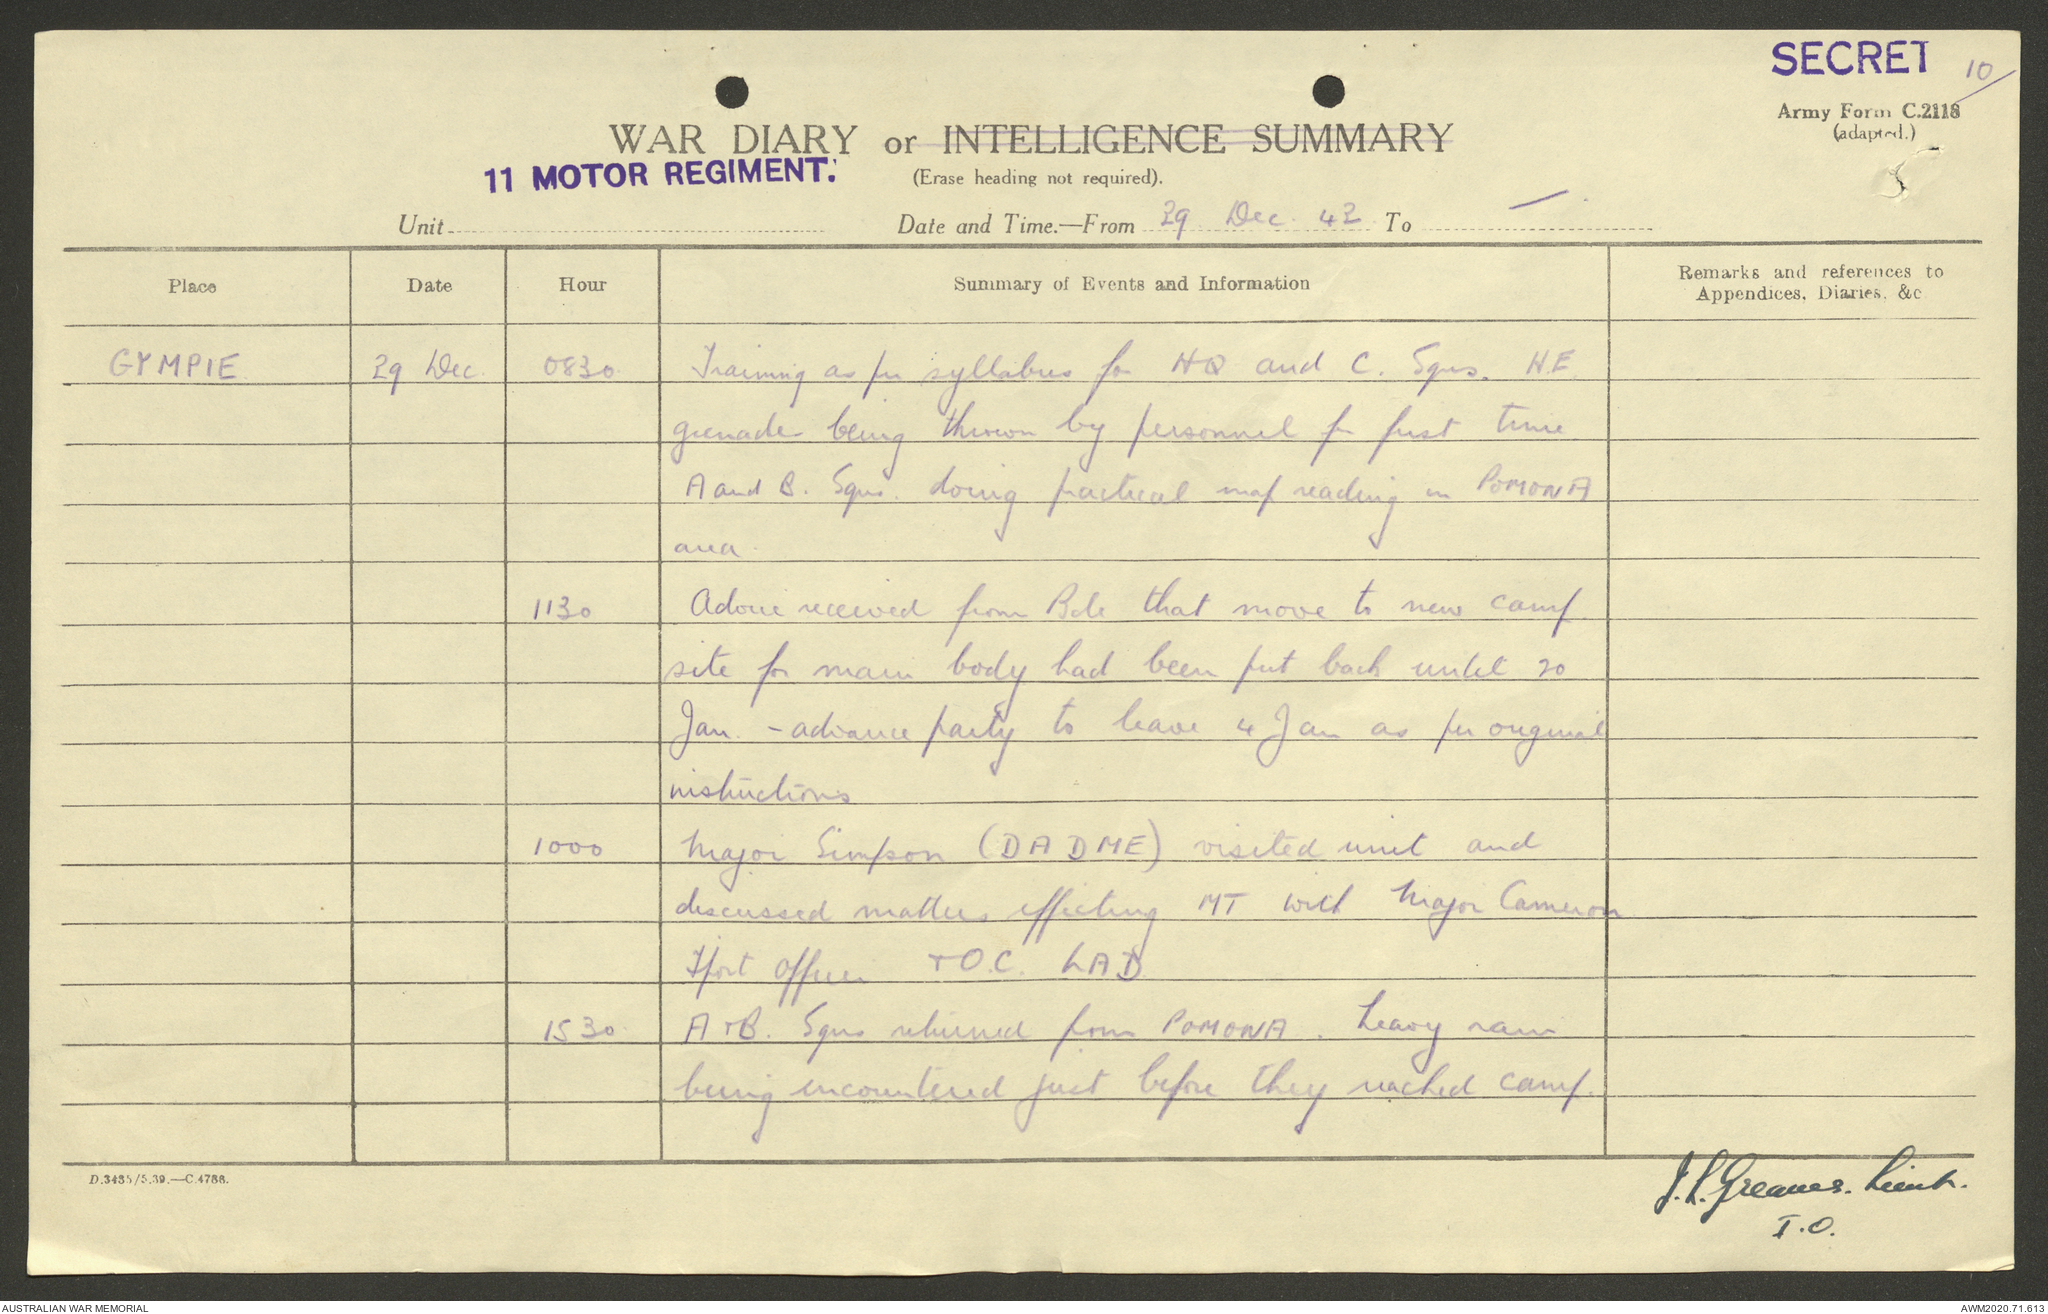 SECRET 10/
Army Form C.2118
(adapted.)
WAR DIARY or INTELLIGENCE SUMMARY
11 MOTOR REGIMENT.
(Erase heading not required).
Unit Date and Time.—From 29 Dec. 42 To —
Place Date Hour Summary of Events and Information Remarks and references to
Appendices, Diaries, &c
GYMPIE 29 Dec. 0830 Training as per syllabus for HQ and C. Sqns. H.E.
grenades being thrown by personnel for first time
A and B. Sqns. doing practical map reading in POMONA
area.
1130 Advice received from Bde that move to new camp
site for main body had been put back until 20
Jan. - advance party to leave 4 Jan as per original
instructions
1000 Major Simpson (DADME) visited unit and
discussed matters effecting MT with Major Cameron
Tport Officer + O.C. LAD.
1530 A + B. Sqns returned from POMONA. Heavy rain
being encountered just before they reached camp.
D.3435/5.39.—C.4788.
J.L. Greaves. Lieut.
I.O.
AUSTRALIAN WAR MEMORIAL AWM2020.71.613